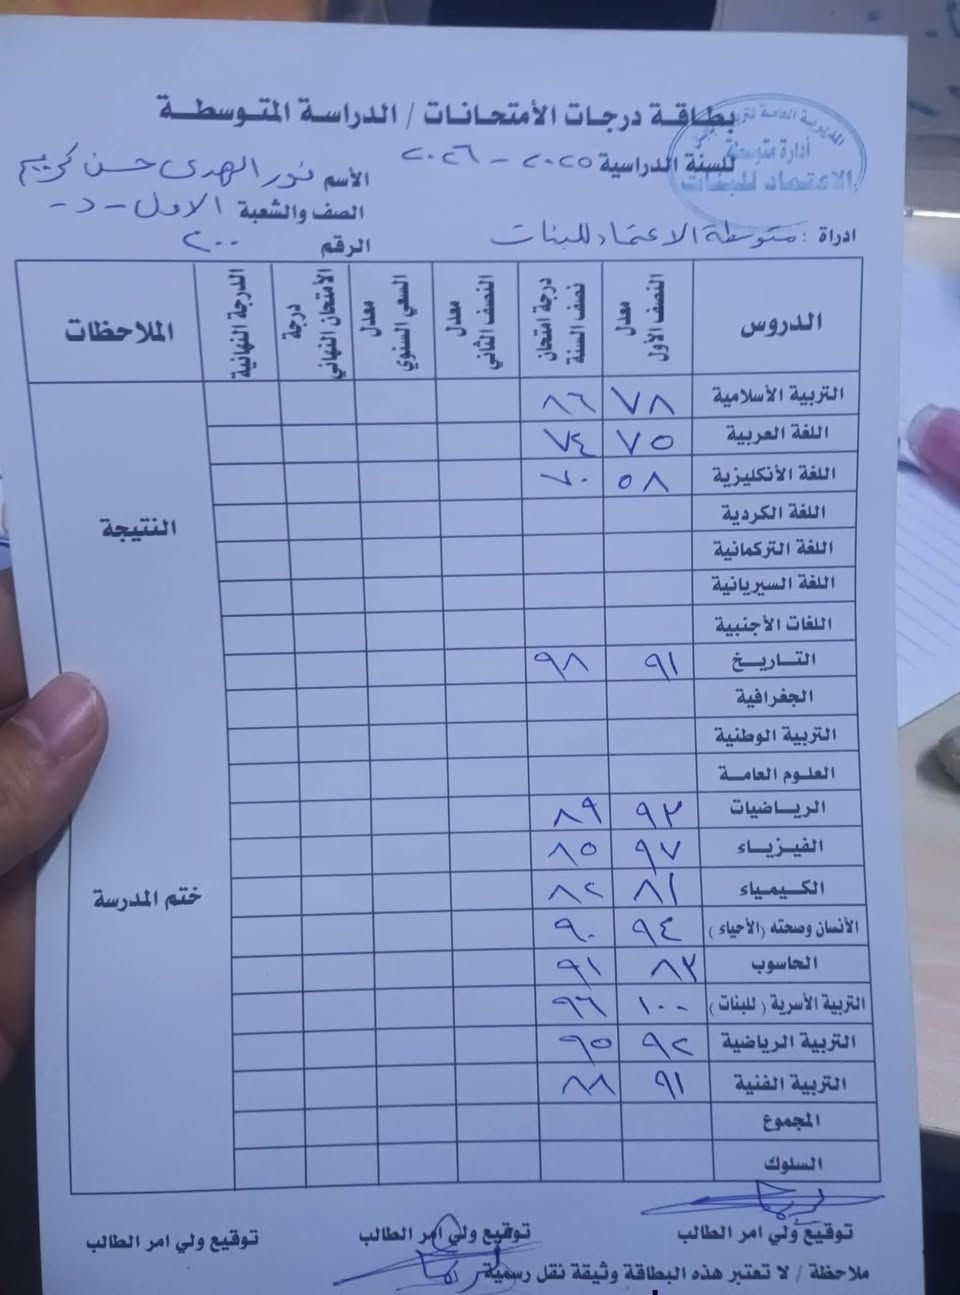 بطاقة درجات الأمتحانات / الدراسة المتوسطة
للسنة الدراسية ٢٠٢٥ - ٢٠٢٦
المديرية العامة لتربية
أدارة متوسطة
الاعتماد للبنات
الأسم نور الهدى حسن كريم
الصف والشعبة الاول - د -
ادراة : متوسطة الاعتماد للبنات
الرقم ٢٠٠
الدروس معدل النصف الأول درجة امتحان نصف السنة معدل النصف الثاني معدل السعي السنوي درجة الأمتحان النهائي الدرجة النهائية الملاحظات
التربية الأسلامية ٧٨ ٨٦
اللغة العربية ٧٥ ٧٤
اللغة الأنكليزية ٥٨ ٧٠
اللغة الكردية
النتيجة
اللغة التركمانية
اللغة السيريانية
اللغات الأجنبية
التاريخ ٩١ ٩٨
الجغرافية
التربية الوطنية
العلوم العامة
الرياضيات ٩٣ ٨٩
الفيزياء ٩٧ ٨٥
الكيمياء ٨١ ٨٢
ختم المدرسة
الأنسان وصحته (الأحياء) ٩٤ ٩٠
الحاسوب ٨٣ ٩١
التربية الأسرية (للبنات) ١٠٠ ٩٦
التربية الرياضية ٩٢ ٩٥
التربية الفنية ٩١ ٨٨
المجموع
السلوك
توقيع ولي امر الطالب توقيع ولي امر الطالب توقيع ولي امر الطالب
ملاحظة / لا تعتبر هذه البطاقة وثيقة نقل رسمية